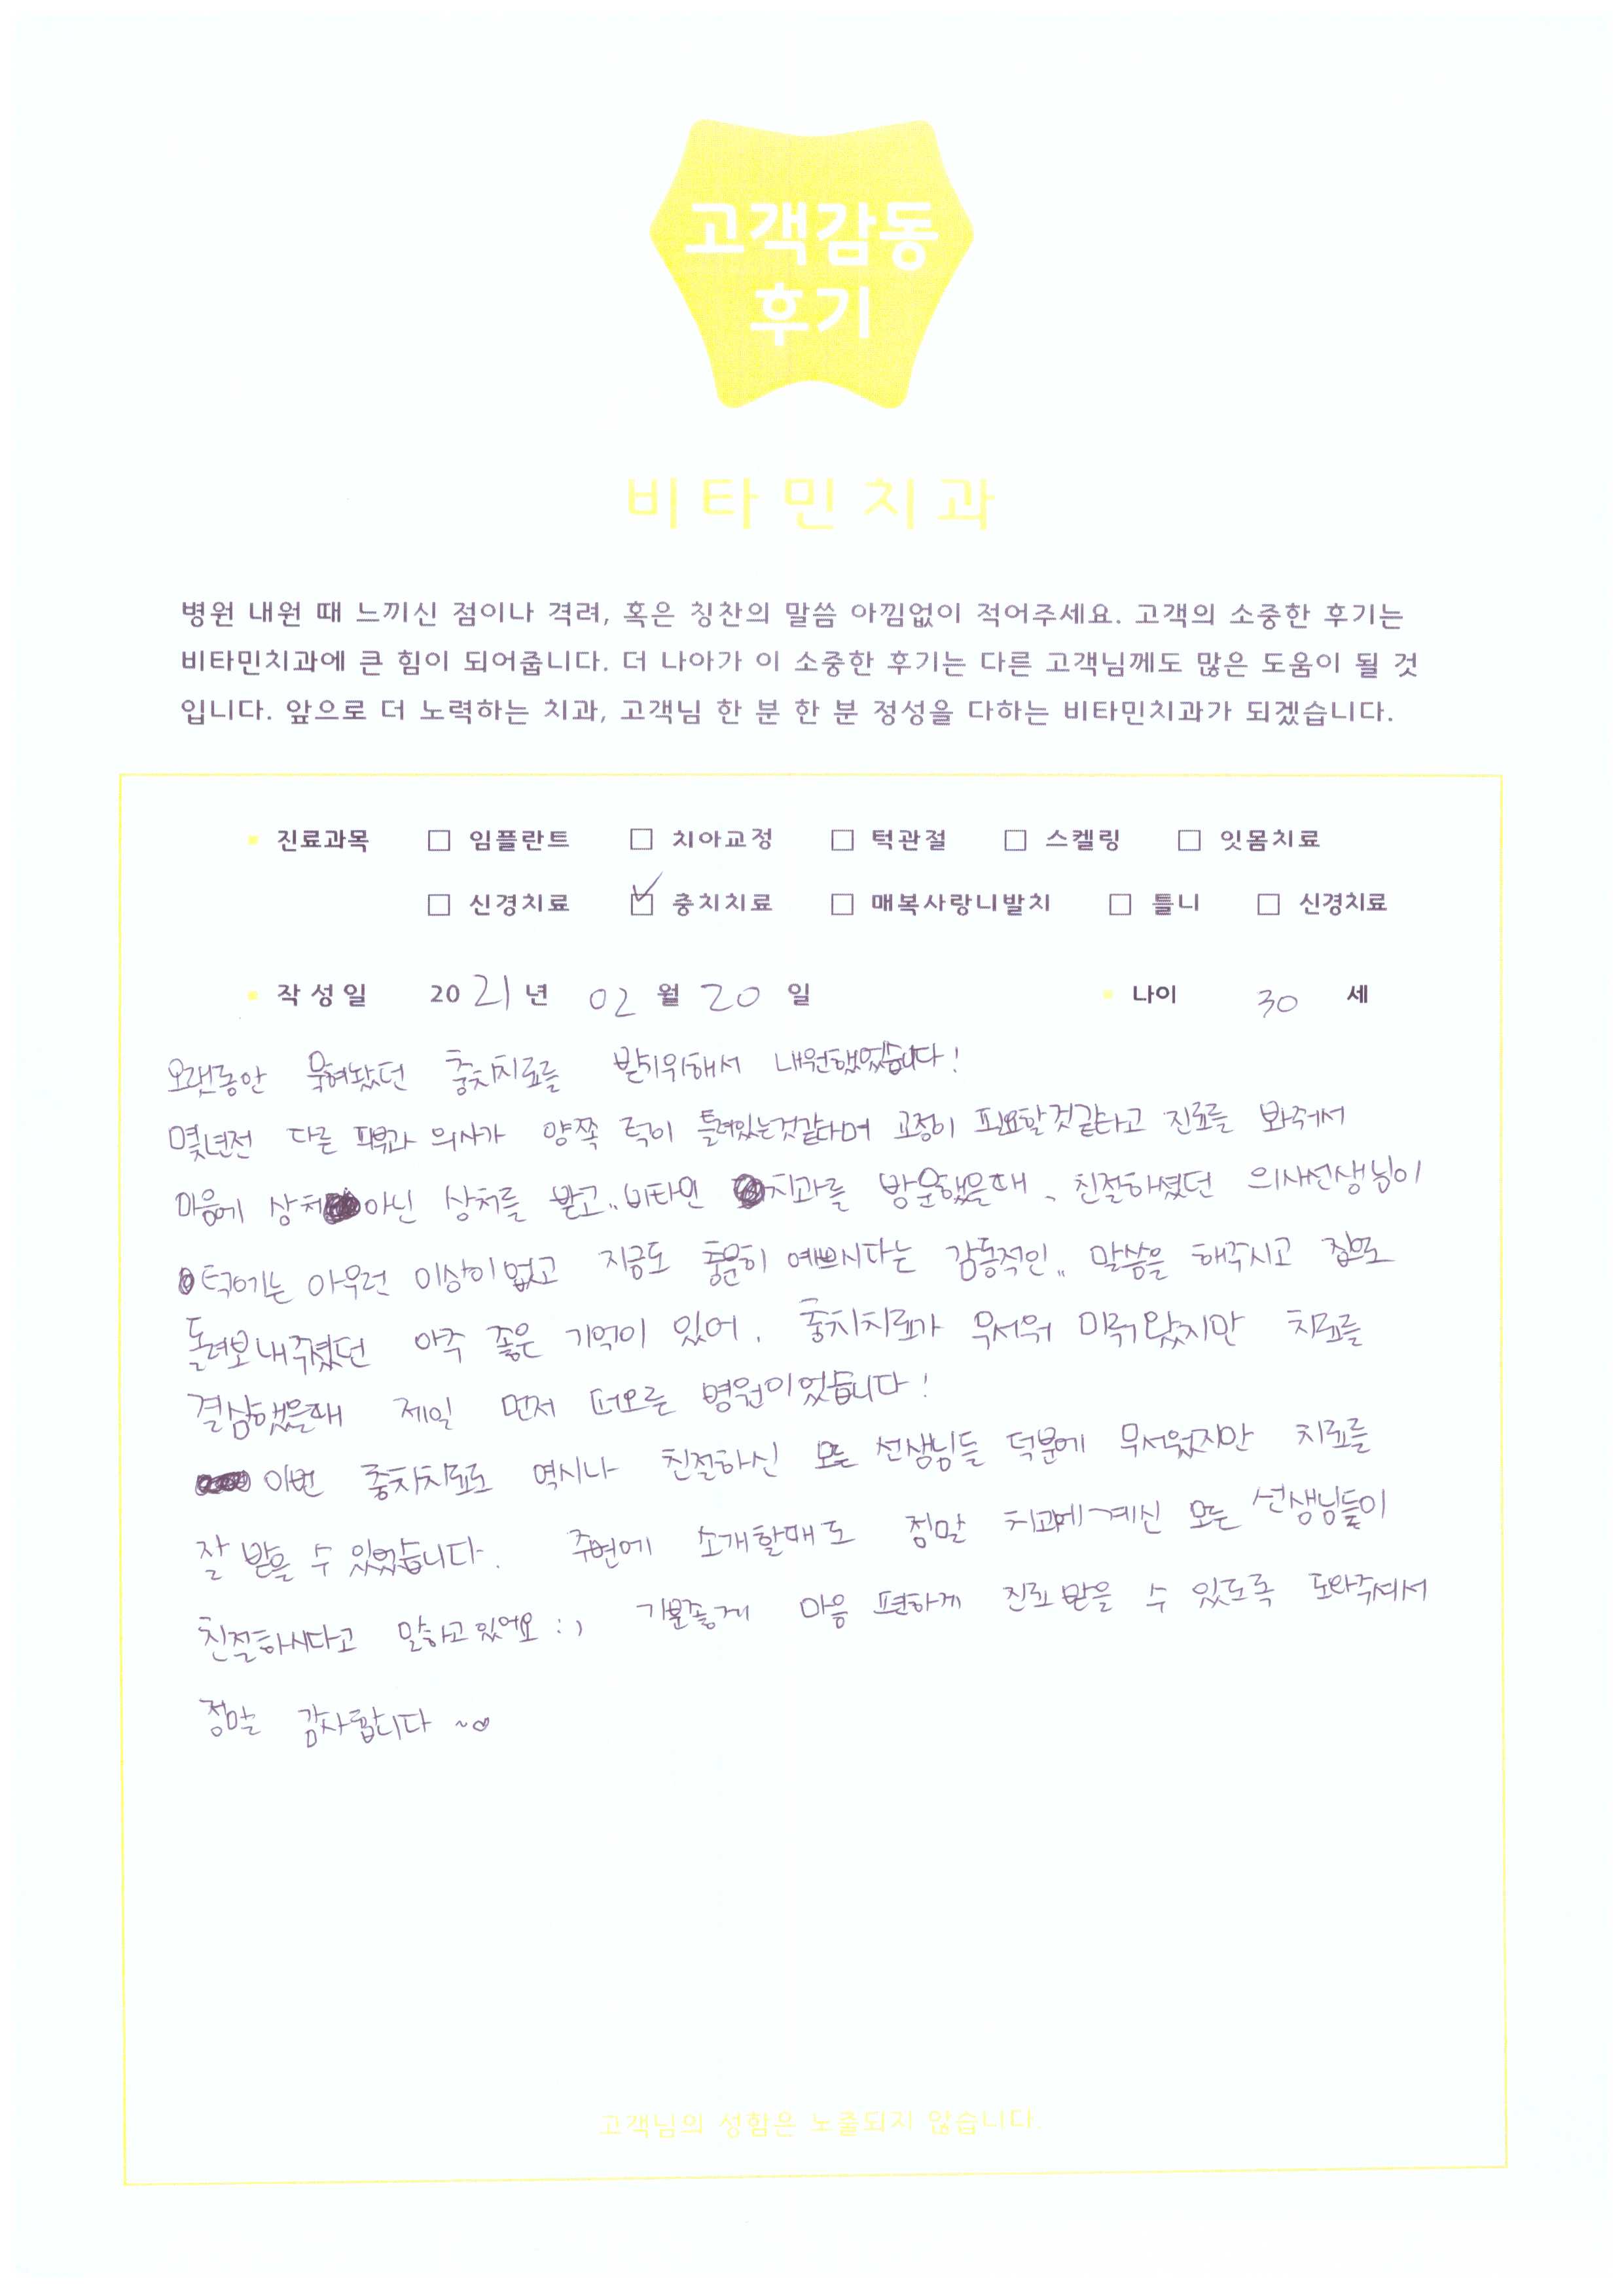 고객감동
후기
비타민치과
병원 내원 때 느끼신 점이나 격려, 혹은 칭찬의 말씀 아낌없이 적어주세요. 고객의 소중한 후기는
비타민치과에 큰 힘이 되어줍니다. 더 나아가 이 소중한 후기는 다른 고객님께도 많은 도움이 될 것
입니다. 앞으로 더 노력하는 치과, 고객님 한 분 한 분 정성을 다하는 비타민치과가 되겠습니다.
진료과목 □ 임플란트 □ 치아교정 □ 턱관절 □ 스켈링 □ 잇몸치료
□ 신경치료 ☑ 충치치료 □ 매복사랑니발치 □ 틀니 □ 신경치료
작성일 2021년 02월 20일 나이 30 세
오랜동안 묵혀놨던 충치치료를 받기위해서 내원했었습니다!
몇년전 다른 피부과 의사가 양쪽 턱이 틀려있는것같다며 교정이 필요할것같다고 진료를 봐주셔서
마음에 상처아닌 상처를 받고.. 비타민 치과를 방문했을때, 친절하셨던 의사선생님이
턱에는 아무런 이상이없고 지금도 충분히 예쁘시다는 감동적인.. 말씀을 해주시고 집으로
돌려보내주셨던 아주 좋은 기억이 있어, 충치치료가 무서워 미뤄왔지만 치료를
결심했을때 제일 먼저 떠오른 병원이었습니다!
이번 충치치료도 역시나 친절하신 모든 선생님들 덕분에 무서웠지만 치료를
잘 받을 수 있었습니다. 주변에 소개할때도 정말 치과에계신 모든 선생님들이
친절하시다고 말하고있어요 :) 기분좋게 마음 편하게 진료받을 수 있도록 도와주셔서
정말 감사합니다 ~♡
고객님의 성함은 노출되지 않습니다.